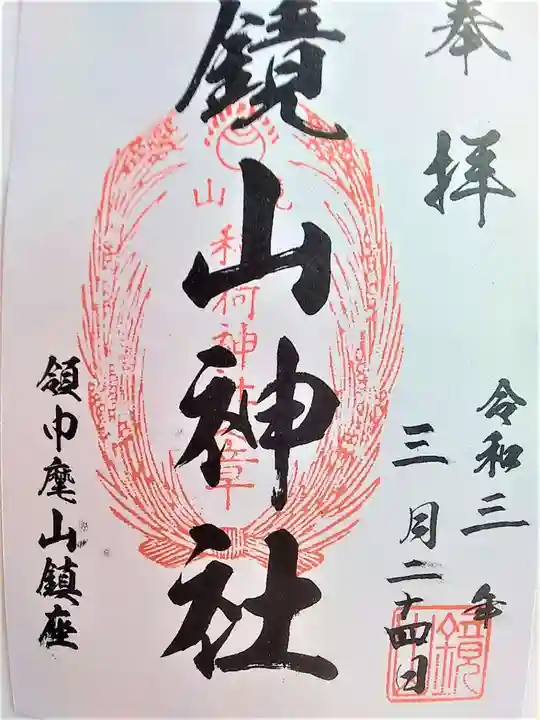 奉拝
令和三年
三月二十四日
鏡山神社
領巾麾山鎮座
山
稲荷神社
章
鏡